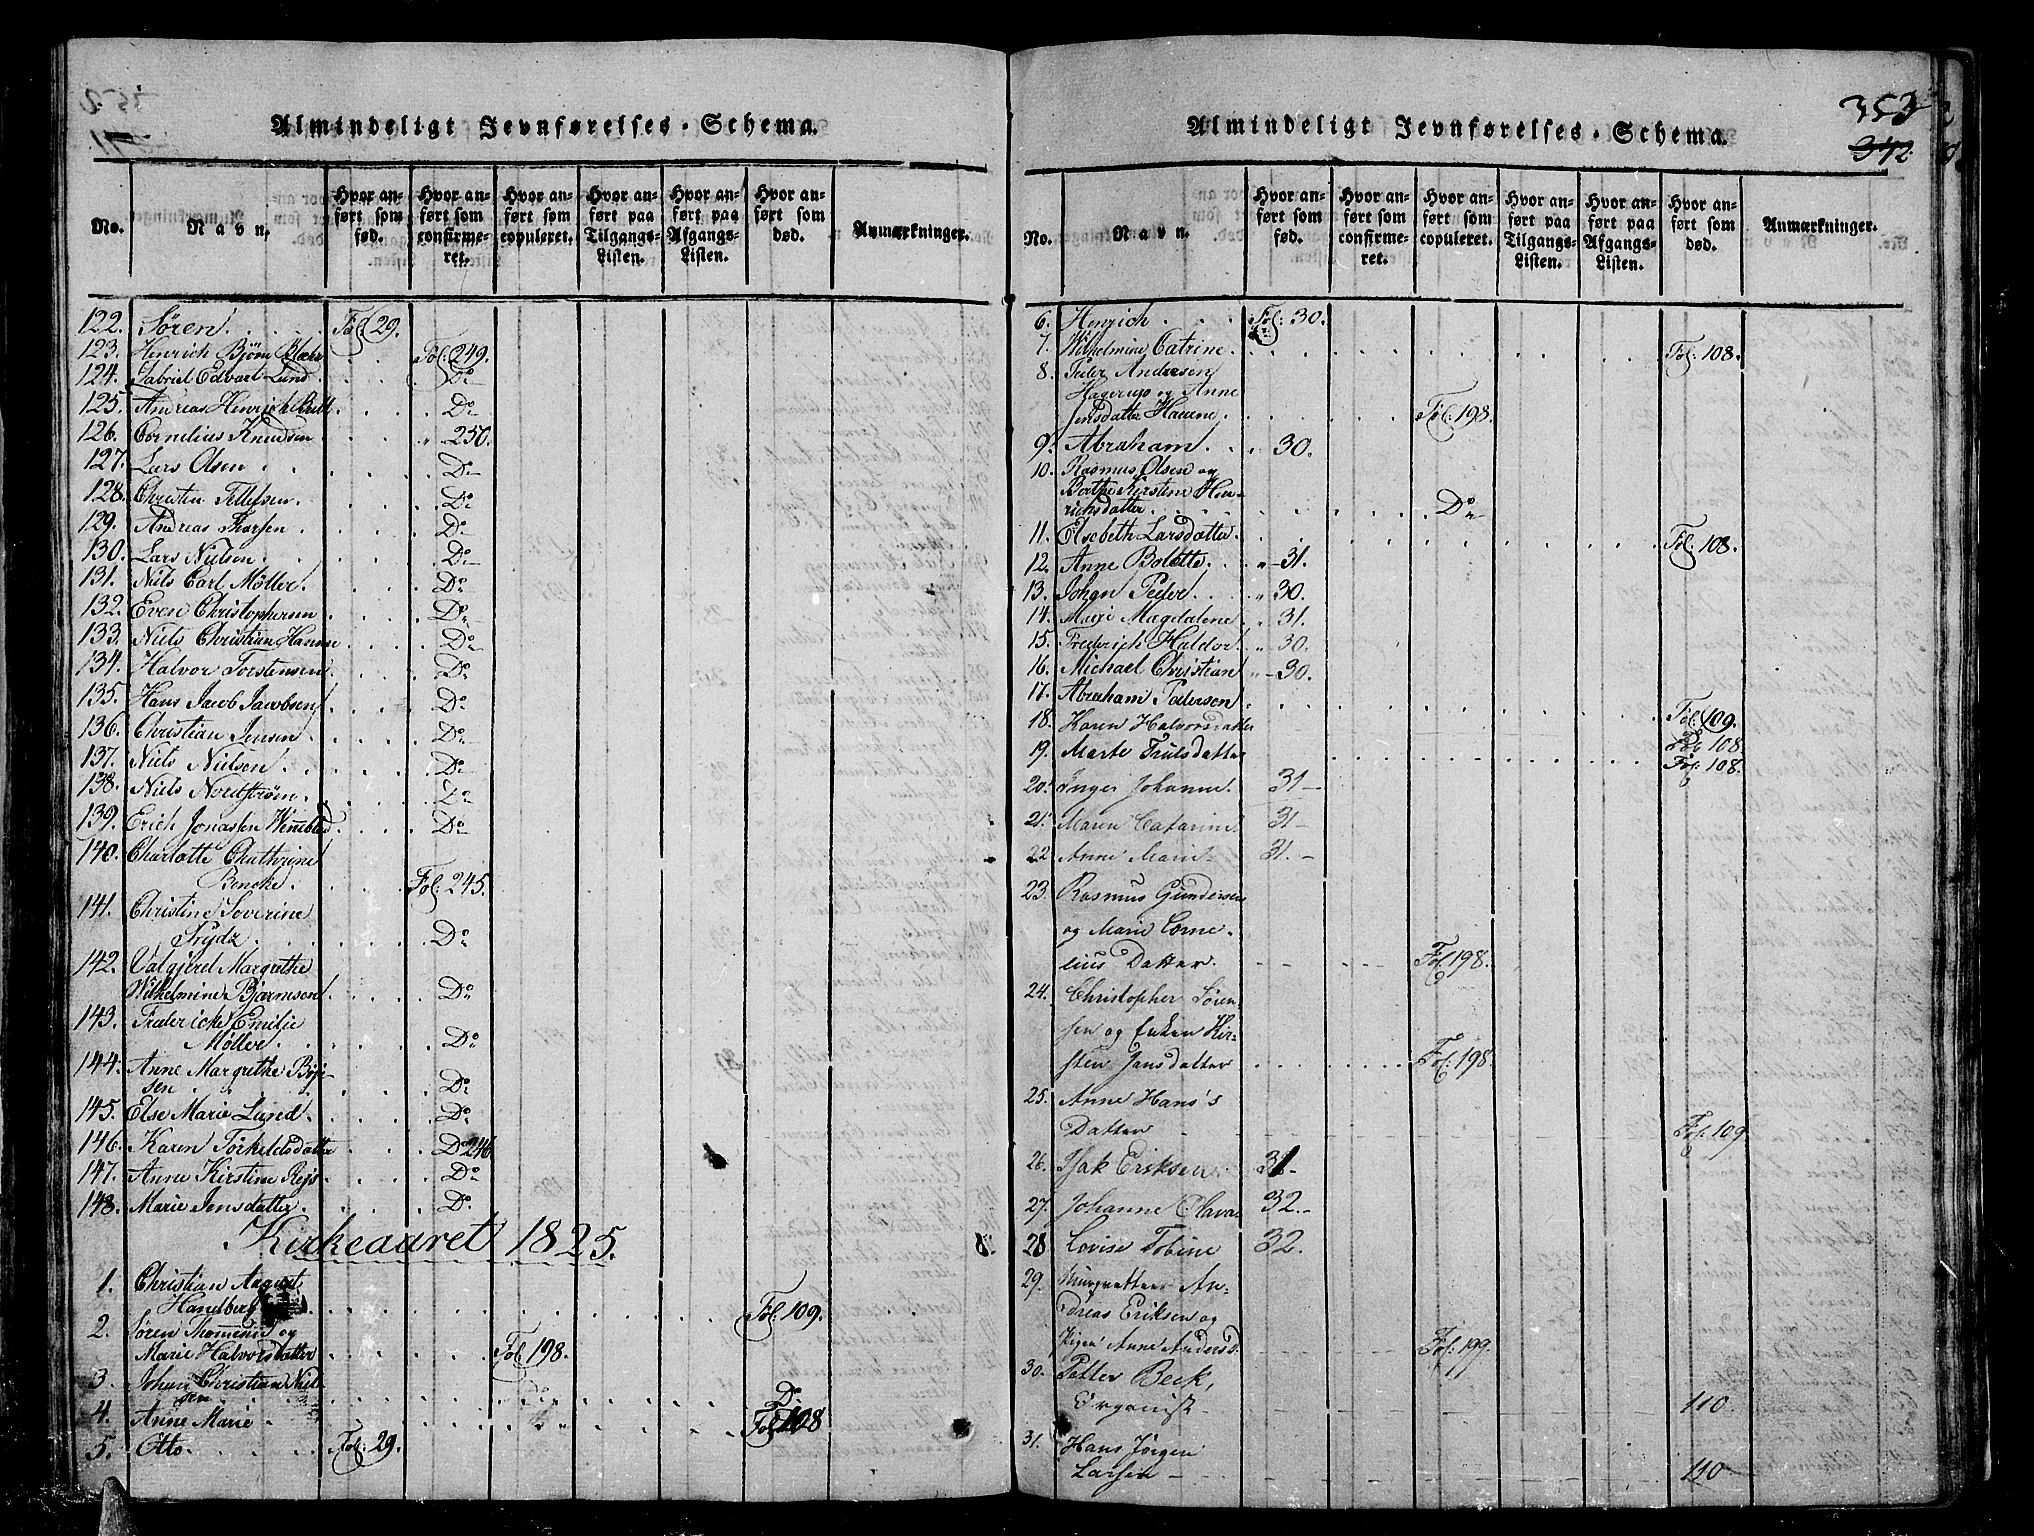 Almindeligt Jevnførelses-Schema.
No. Navn. Hvor anført som fød. Hvor anført som confirmeret. Hvor anført som copuleret. Hvor anført paa Tilgangs-Listen. Hvor anført paa Afgangs-Listen. Hvor anført som død. Anmærkninger.
122. Søren. Fol. 29.
123. Henrich Bjørn Fol: 249.
124. Gabriel Edvart Lund. Do
125. Andreas Henrich Do
126. Cornelius Knudsen " 250.
127. Lars Olsen Do
128. Christen Tellefsen. Do
129. Andreas Do
130. Lars Nielsen Do
131. Niels Carl Möller. Do
132. Even Christophersen Do
133. Niels Christian Hansen Do
134. Halvor Torstensen Do
135. Hans Jacob Jacobsen Do
136. Christian Jensen Do
137. Niels Nielsen Do
138. Niels Nordstrøm. Do
139. Erich Jonassen Do
140. Charlotte Chathrine
Bencke. Fol: 245.
141. Christine Severine
Do
142. Valgjerd Margrethe
Wilhelmine Bjarnesen Do
143. Fredericke Emilie
Möller. Do
144. Anne Margrethe
sen Do
145. Else Marie Lund. Do
146. Karen Törkeldsdatter Do 246
147. Anne Kirstine Do
148. Marie Jensdatter. Do
Kirkeaaret 1825.
1. Christian August
Handberg Fol: 109.
2. Søren Thommesen og
Marie Halvorsdatter Fol. 198.
3. Johan Christian Niel-
sen Do
4. Anne Marie Fol. 108
5. Otto. Fol: 29.
353
342
Almindeligt Jevnførelses-Schema.
No. Navn. Hvor anført som fød. Hvor anført som confirmeret. Hvor anført som copuleret. Hvor anført paa Tilgangs-Listen. Hvor anført paa Afgangs-Listen. Hvor anført som død. Anmærkninger.
6. Henrich Fol: 30.
7. Wilhelmine Catrine. Fol: 108.
8. Peder Andresen
Hagerup og Anne
Jensdatter Fol: 198.
9. Abraham " 30.
10. Rasmus Olsen og
Kirstine Hen-
richsdatter. Do
11. Elsebeth Larsdatter. Fol: 108.
12. Anne Bolette. " 31.
13. Johan Peder. " 30.
14. Marie Magdalene. " 31.
15. Frederich Haldor. " 30.
16. Michael Christian " 30.
17. Abraham Pedersen Fol: 109.
18. Karen Halvorsdatter Fol 108
19. Marte Trulsdatter Fol: 108.
20. Inger Johanne. 31
21. Maren Catarine 31
22 Anne Marie 31.
23. Rasmus Gundersen
og Marie Corne-
lius Datter. Fol 198.
24. Christopher Søren-
sen og Kir-
sten Jansdatter Fol. 198
25. Anne Hans's
Datter Fol. 109
26. Isak Eriksen 31
27. Johanne Olava 32.
28 Lovise Tobine 32.
29. An-
dreas Eriksen og
Pigen Anne Andersd. Fol: 199.
30. Petter Beck,
Organist 110
31. Hans Jørgen
Larsen 110